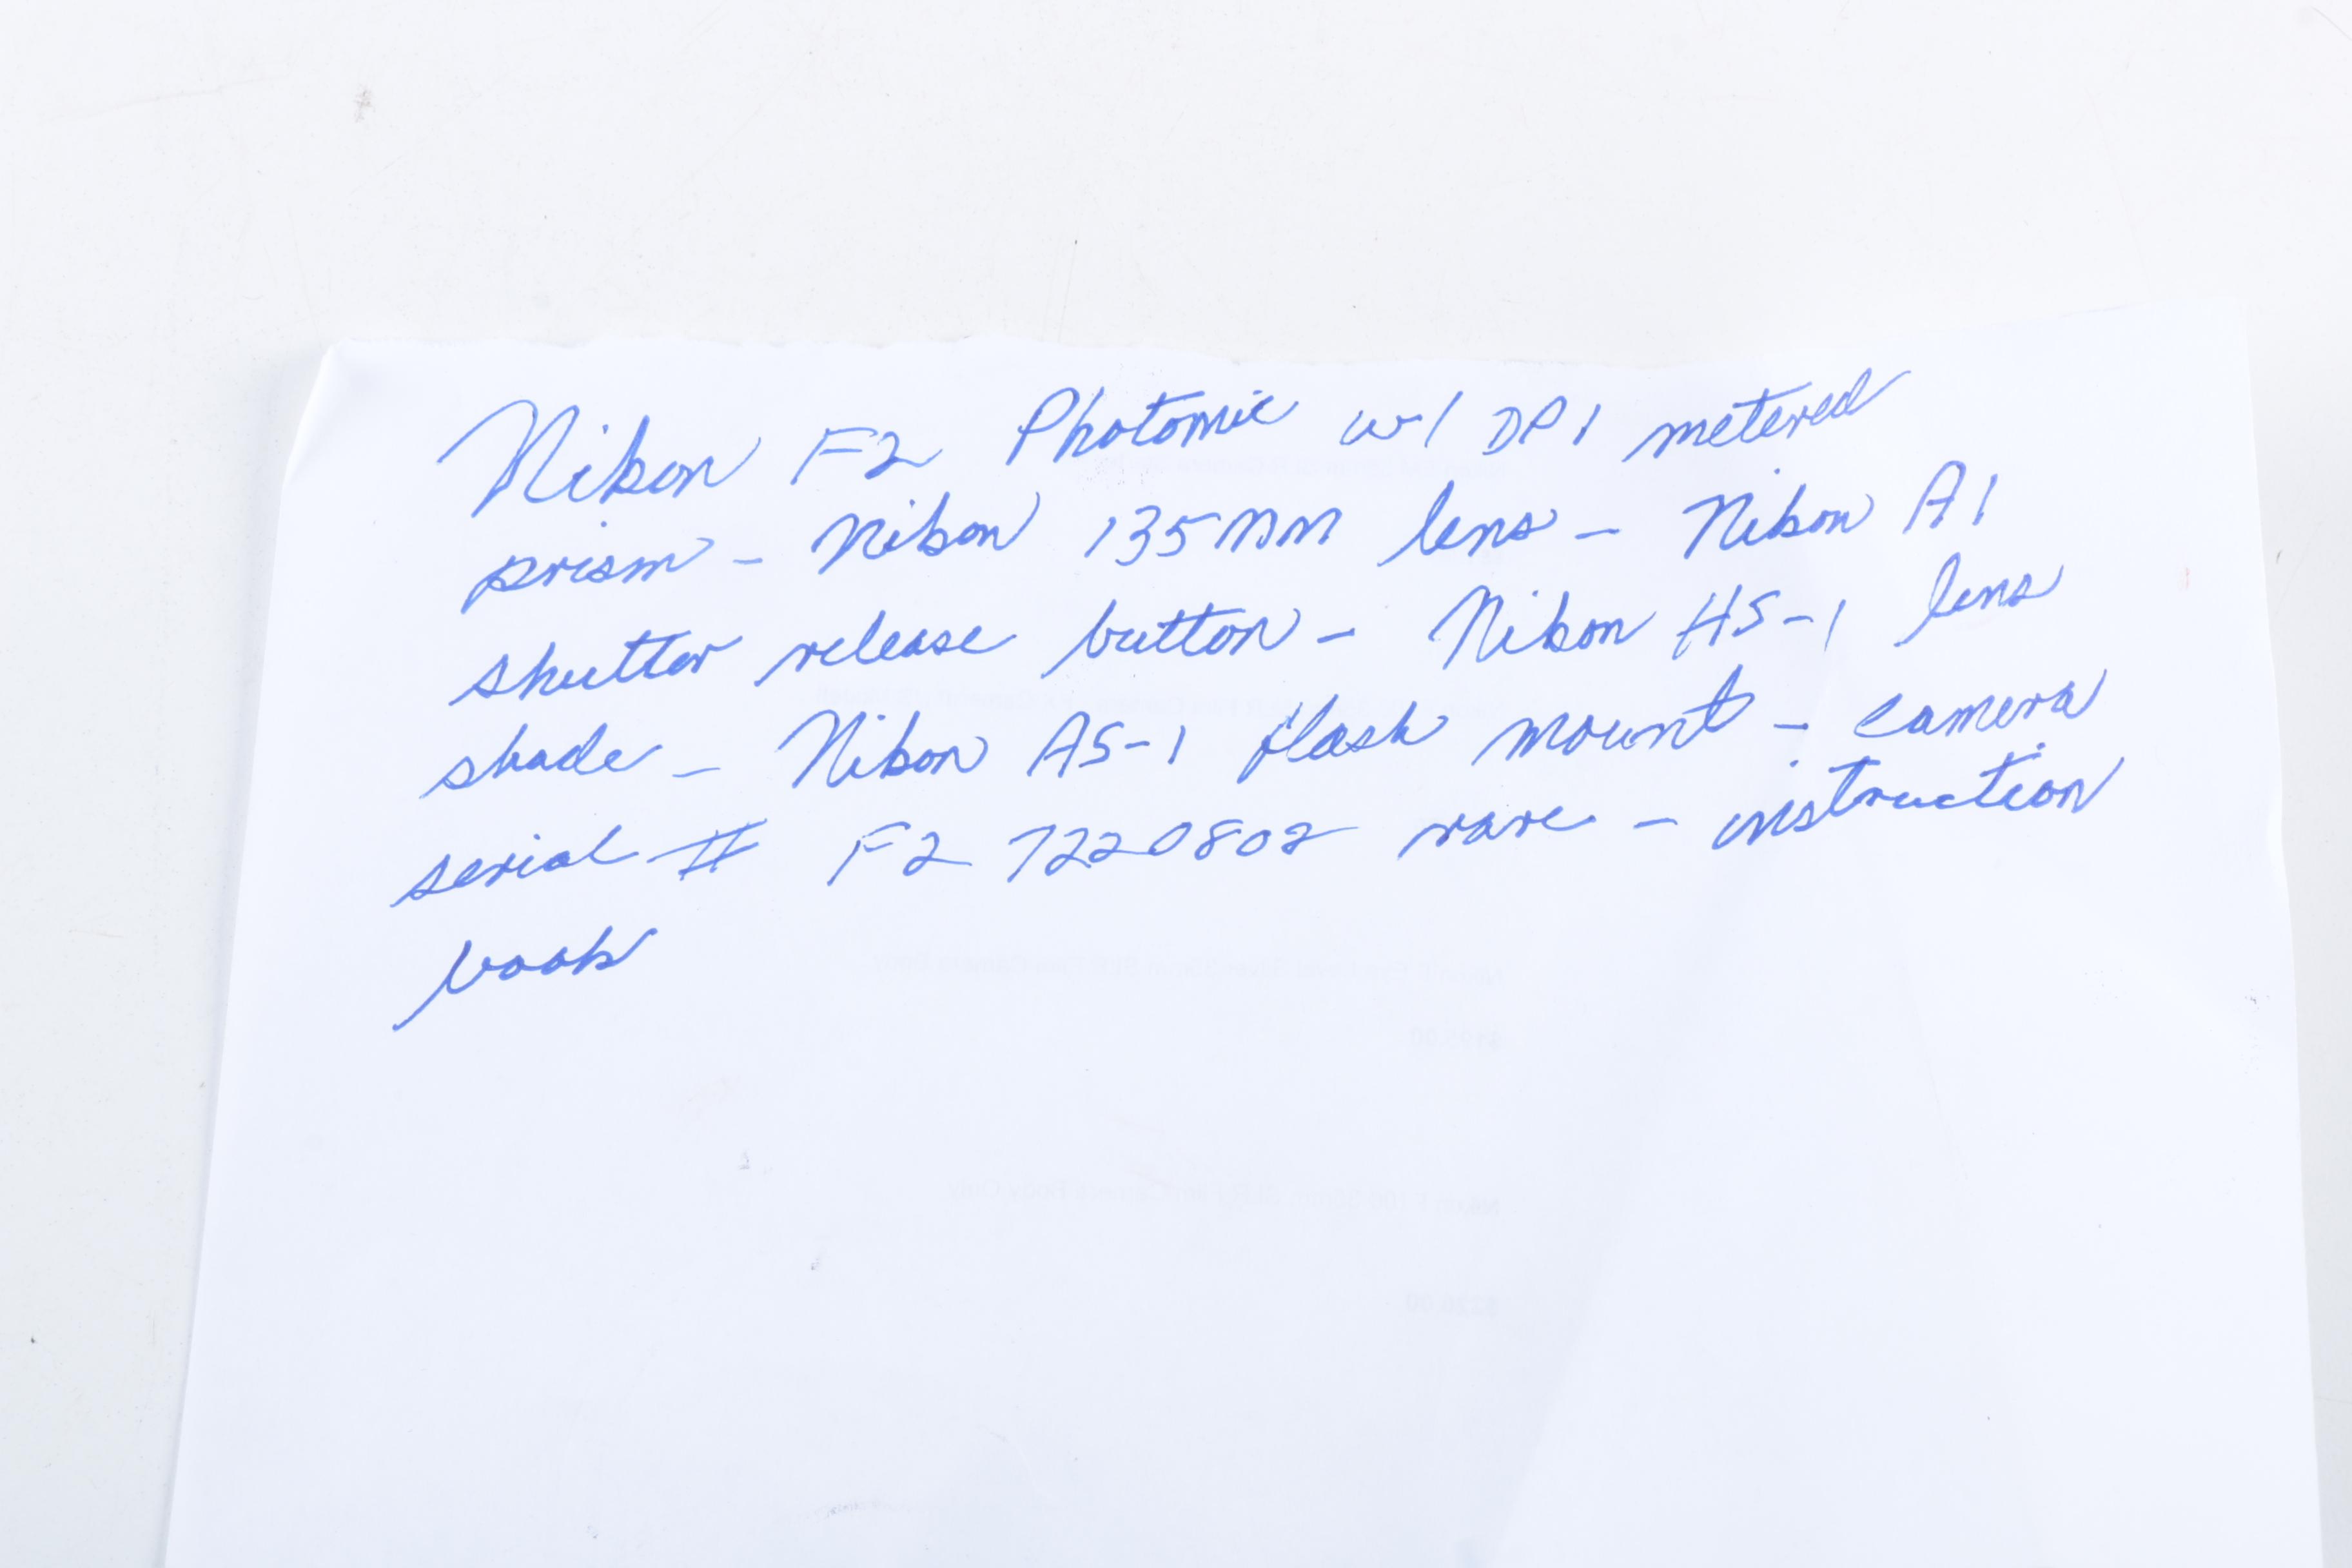 Nikon F2 Photomic w/ DP1 metered
prism - Nikon 135mm lens - Nikon A1
shutter release button - Nikon HS-1 lens
shade - Nikon AS-1 flash mount - camera
serial # F2 7220802 rare - instruction
book